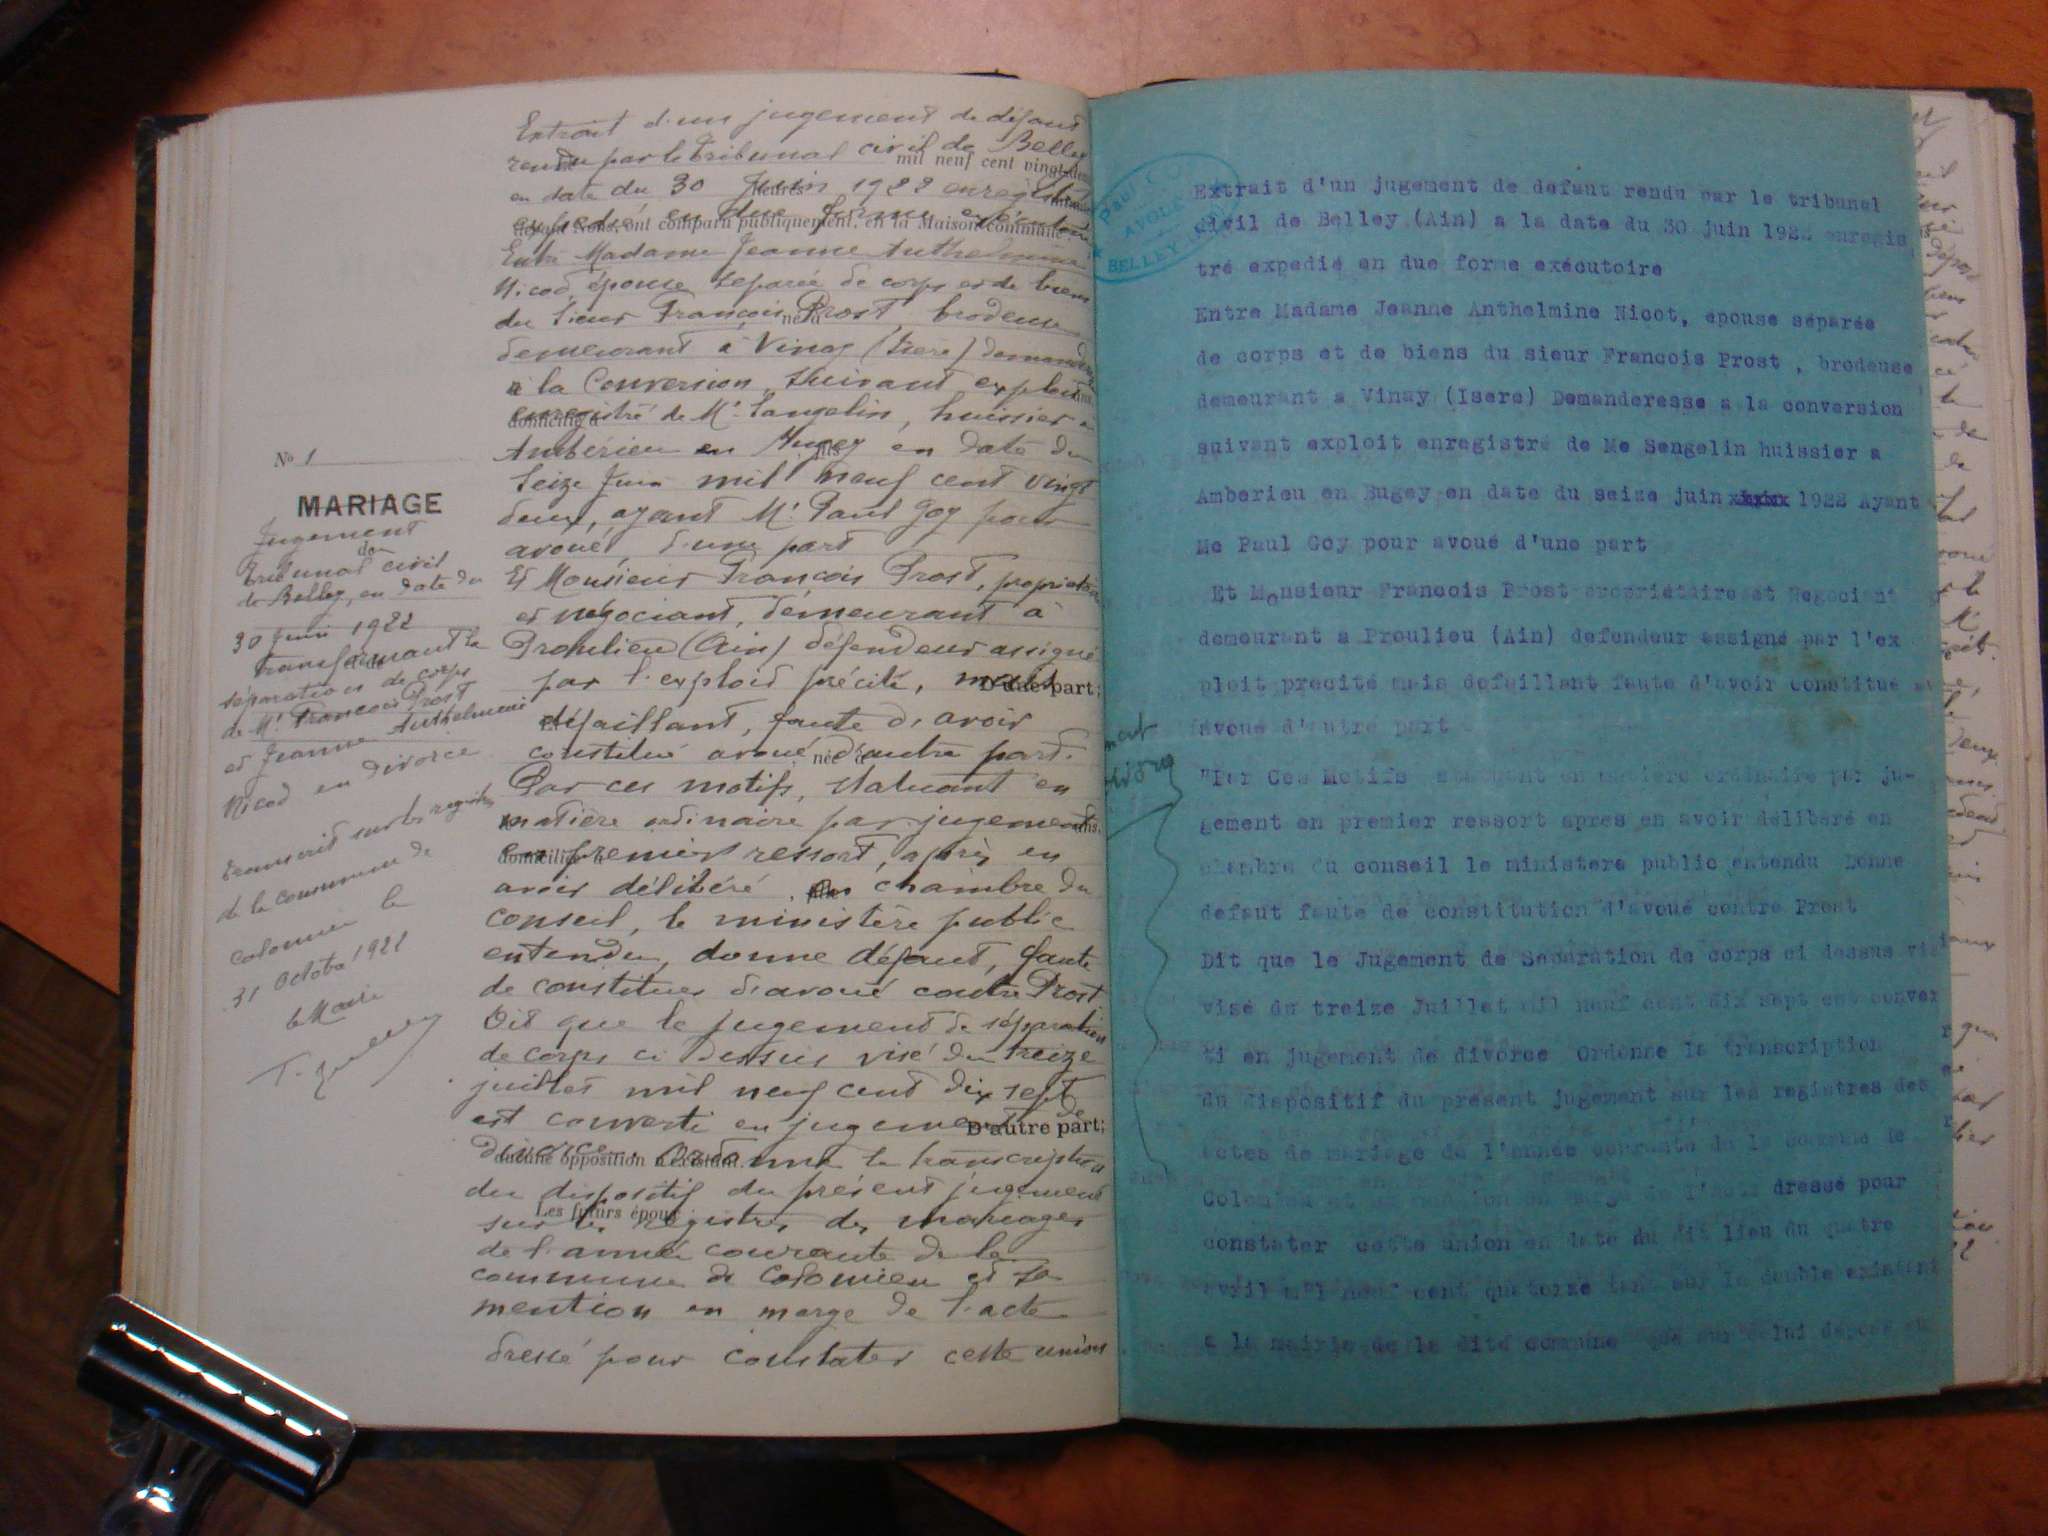 Extrait d'un jugement de défaut
rendu par le Tribunal civil de Belley
mil neuf cent vingt-deux
en date du 30 Juin 1922 enregistré
heures
expédié en due forme exécutoire
devant Nous, ont comparu publiquement, en la Maison commune :
Entre Madame Jeanne Anthelmine
Nicod, épouse séparée de corps et de biens
du Sieur François Prost, brodeuse
né à
demeurant à Vinay (Isère) demanderesse
à la Conversion, suivant exploit
enregistré de Me Sangelin, huissier à
domicilié à
Ambérieu en Bugey en date du
fils
Seize Juin mil neuf cent vingt
deux, ayant Me Paul Goy pour
avoué, d'une part
Et Monsieur François Prost, propriétaire
et négociant, demeurant à
Proulieu (Ain) défendeur assigné
par l'exploit précité, mais
D'une part;
défaillant, faute d'avoir
constitué avoué d'autre part.
née à
Par ces motifs, statuant en
matière ordinaire par jugement
en premier ressort, après en
domiciliée à
avoir délibéré en chambre du
conseil, le ministère public
entendu, donne défaut, faute
de constitution d'avoué contre Prost
Dit que le jugement de séparation
de corps ci dessus visé du treize
juillet mil neuf cent dix sept
est converti en jugement de
D'autre part;
divorce. Ordonne la transcription
aucune opposition n'existant.
du dispositif du présent jugement
Les futurs époux
sur les registres des mariages
de l'année courante de la
commune de Colomieu et sa
mention en marge de l'acte
dressé pour constater cette union
No 1
MARIAGE
Jugement
du
Tribunal civil
de Belley, en date du
30 Juin 1922
transformant la
séparation de corps
de Mr François Prost
et Jeanne Anthelmine
Nicod en divorce
transcrit sur les registres
de la commune de
Colomieu le
31 Octobre 1922
le Maire
Extrait d'un jugement de defaut rendu par le tribunal
civil de Belley (Ain) a la date du 30 juin 1922 enregis
tré expedié en due forme exécutoire
Entre Madame Jeanne Anthelmine Nicot, épouse séparée
de corps et de biens du sieur Francois Prost , brodeuse
demeurant a Vinay (Isere) Demanderesse a la conversion
suivant exploit enregistré de Me Sengelin huissier a
Amberieu en Bugey en date du seize juin 1922 Ayant
Me Paul Goy pour avoué d'une part
Et Monsieur Francois Prost propriétaire et Negociant
demeurant a Proulieu (Ain) defendeur assigné par l'ex
ploit precité mais defaillant faute d'avoir constitué
avoué d'autre part
"Par Ces Motifs statuant en matiere ordinaire par ju-
gement en premier ressort apres en avoir délibéré en
chambre du conseil le ministere public entendu Donne
defaut faute de constitution d'avoué contre Prost
Dit que le Jugement de Separation de corps ci dessus vi
visé du treize Juillet mil neuf cent dix sept est conver
ti en jugement de divorce Ordonne la transcription
du dispositif du présent jugement sur les registres des
actes de mariage de l'année courante de la commune de
Colomieu et mention en marge de l'acte dressé pour
constater cette union en date du dit lieu du quatre
avril mil neuf cent quatorze tant sur le double existant
a la mairie de la dite commune que sur celui déposé au